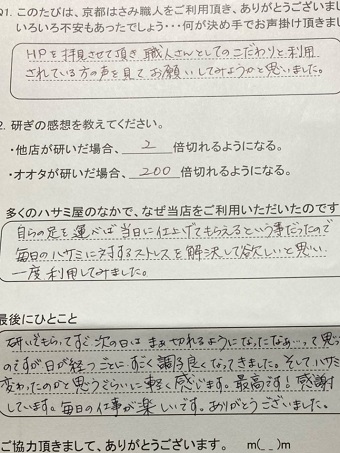 Q1. このたびは、京都はさみ職人をご利用頂き、ありがとうございまし
いろいろ不安もあったでしょう・・・何が決め手でお声掛け頂きま
HPを拝見させて頂き職人さんとしてのこだわりと利用
されている方の声を見てお願いしてみようかと思いました。
2. 研ぎの感想を教えてください。
・他店が研いだ場合、 2 倍切れるようになる。
・オオタが研いだ場合、 200 倍切れるようになる。
多くのハサミ屋のなかで、なぜ当店をご利用いただいたのです
自らの足を運べば当日に仕上げてもらえるという事だったので
毎日のハサミに対するストレスを解決して欲しいと思い
一度利用してみました。
最後にひとこと
研いでもらってすぐ次の日は まぁ切れるようになったなぁ…って思っ
のですが日が経つごとにすごく調子良くなってきました。そしてハサミ
変わったのかと思うぐらいに軽く感じます。最高です!感謝
しています。毎日の仕事が楽しいです。ありがとうございました。
ご協力頂きまして、ありがとうございます。 m(_ _)m